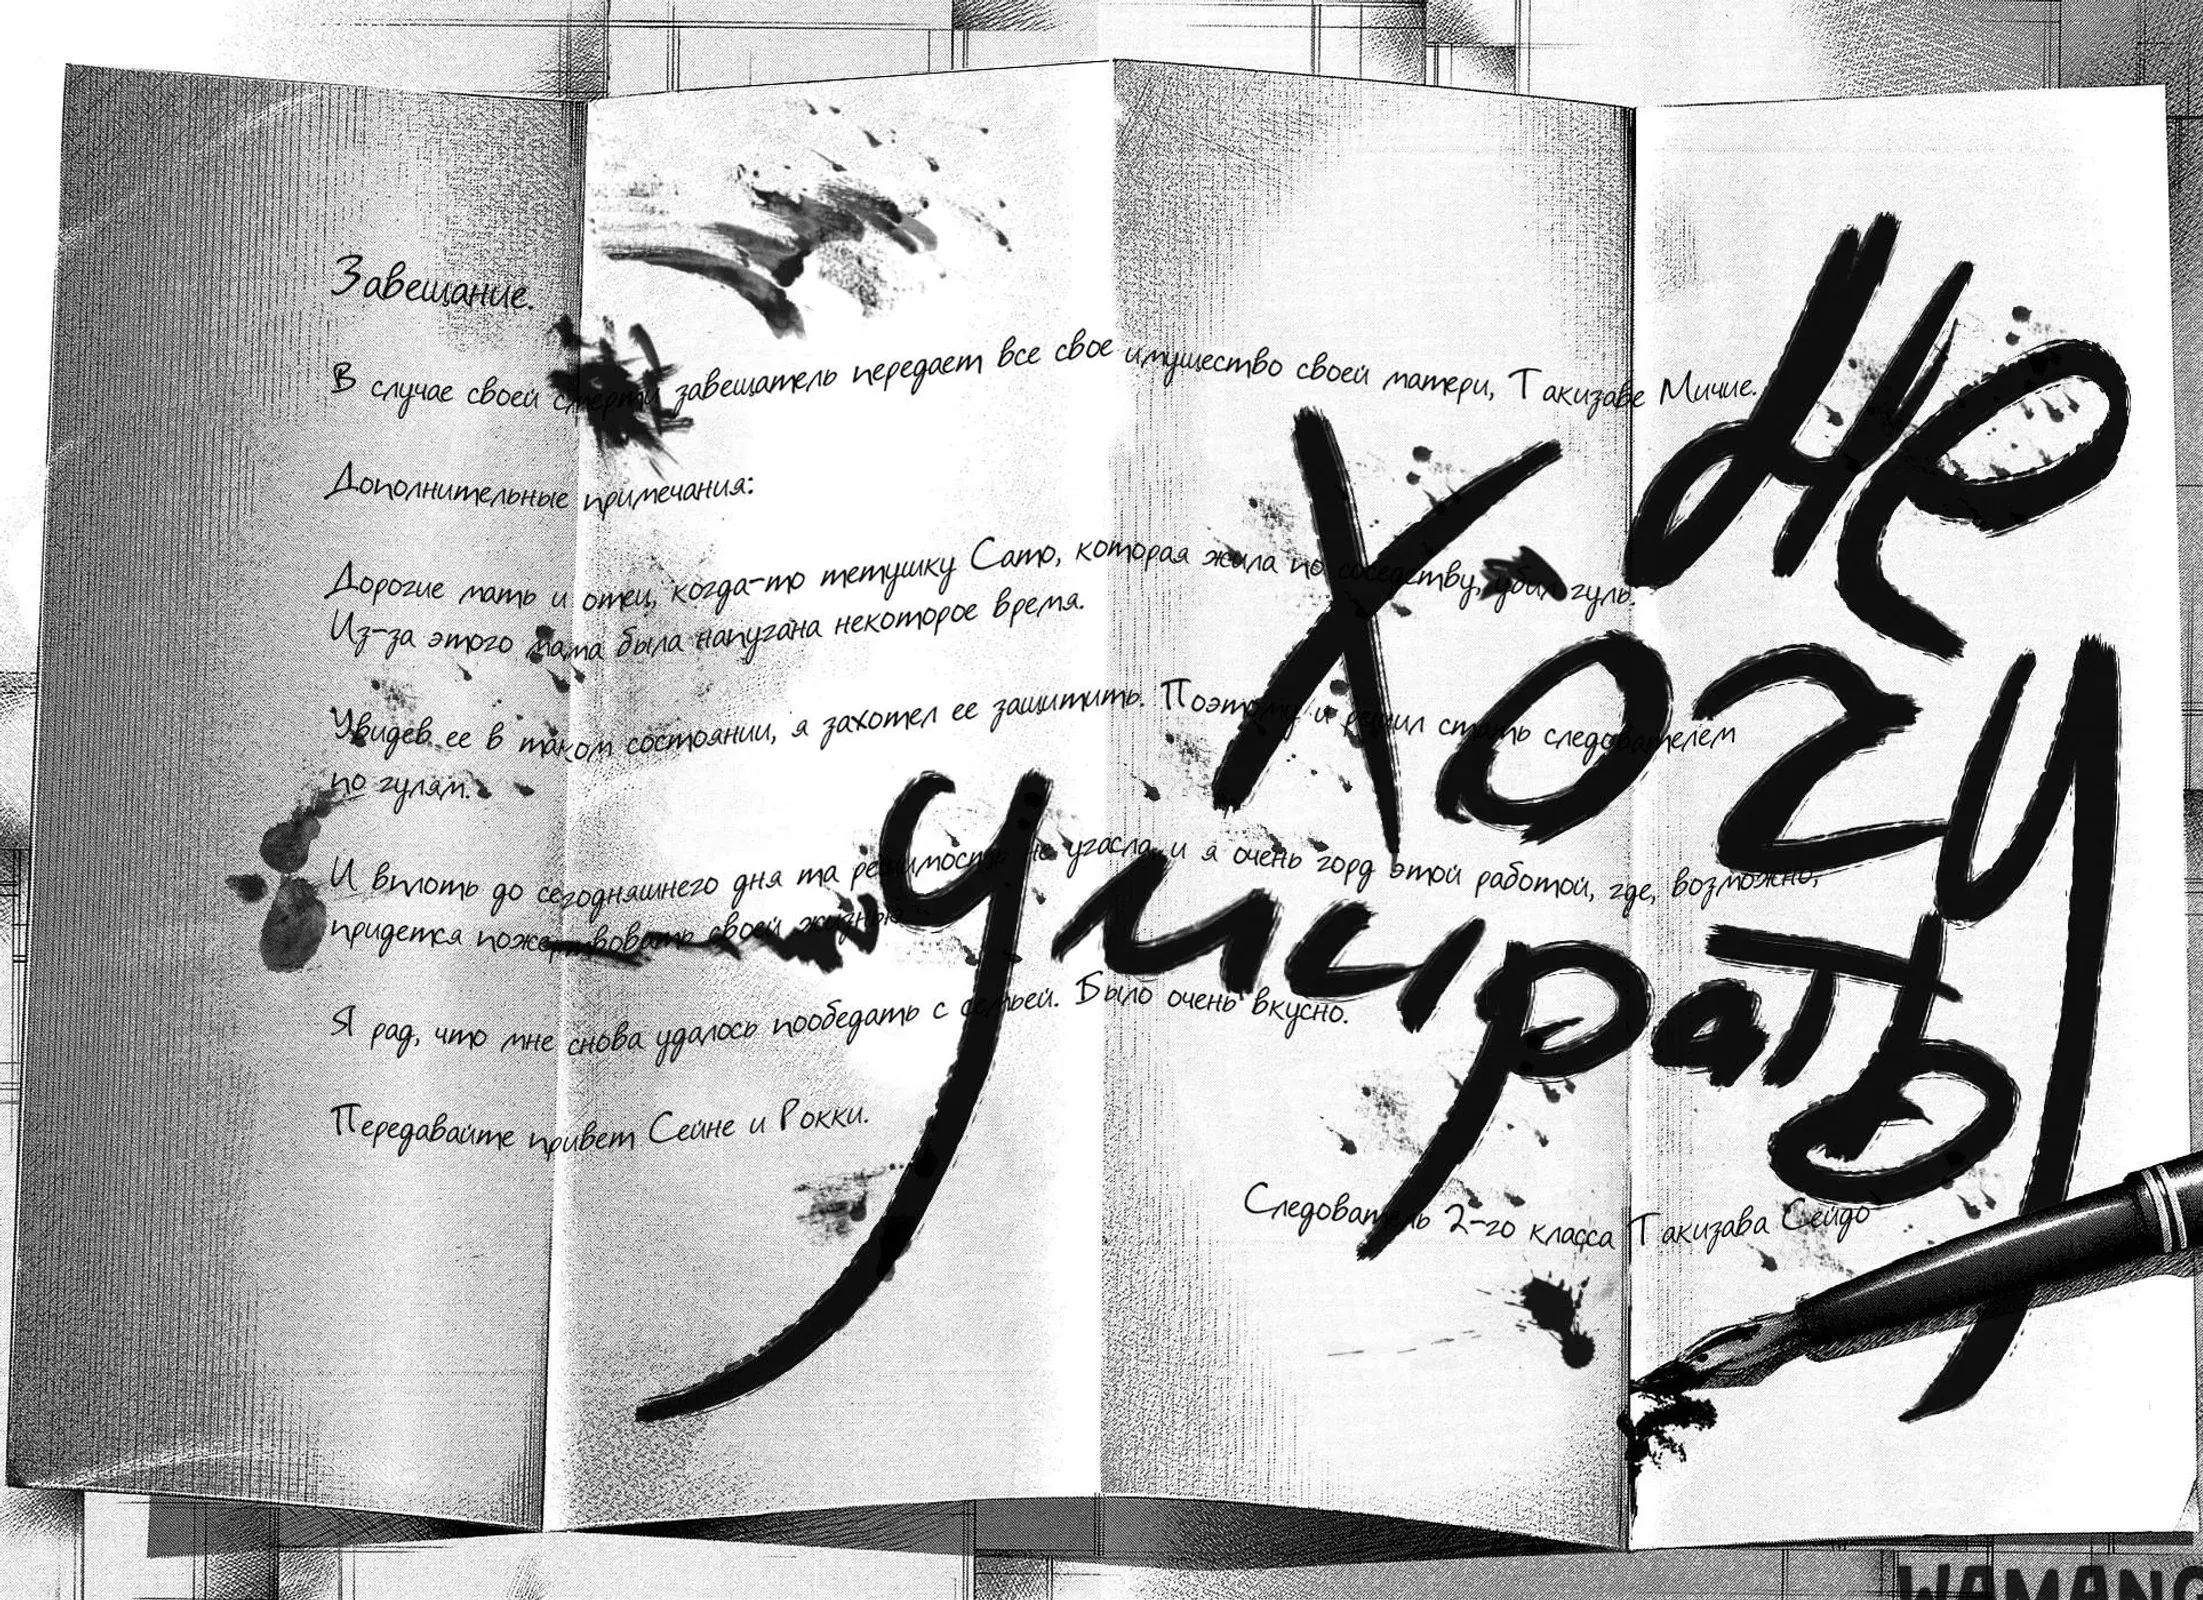 Завещание.
В случае своей смерти завещатель передает все свое имущество своей матери, Такизаве Мичие.
Дополнительные примечания:
Дорогие мать и отец, когда-то тетушку Сато, которая жила по соседству, убил гуль.
Из-за этого мама была напугана некоторое время.
Увидев ее в таком состоянии, я захотел ее защитить. Поэтому и решил стать следователем
по гулям.
И вплоть до сегодняшнего дня та решимость не угасла, и я очень горд этой работой, где, возможно,
придется пожертвовать своей жизнью
Я рад, что мне снова удалось пообедать с семьей. Было очень вкусно.
Передавайте привет Сейне и Рокки.
Следователь 2-го класса Такизава Сейдо
Не
Хочу
Умирать